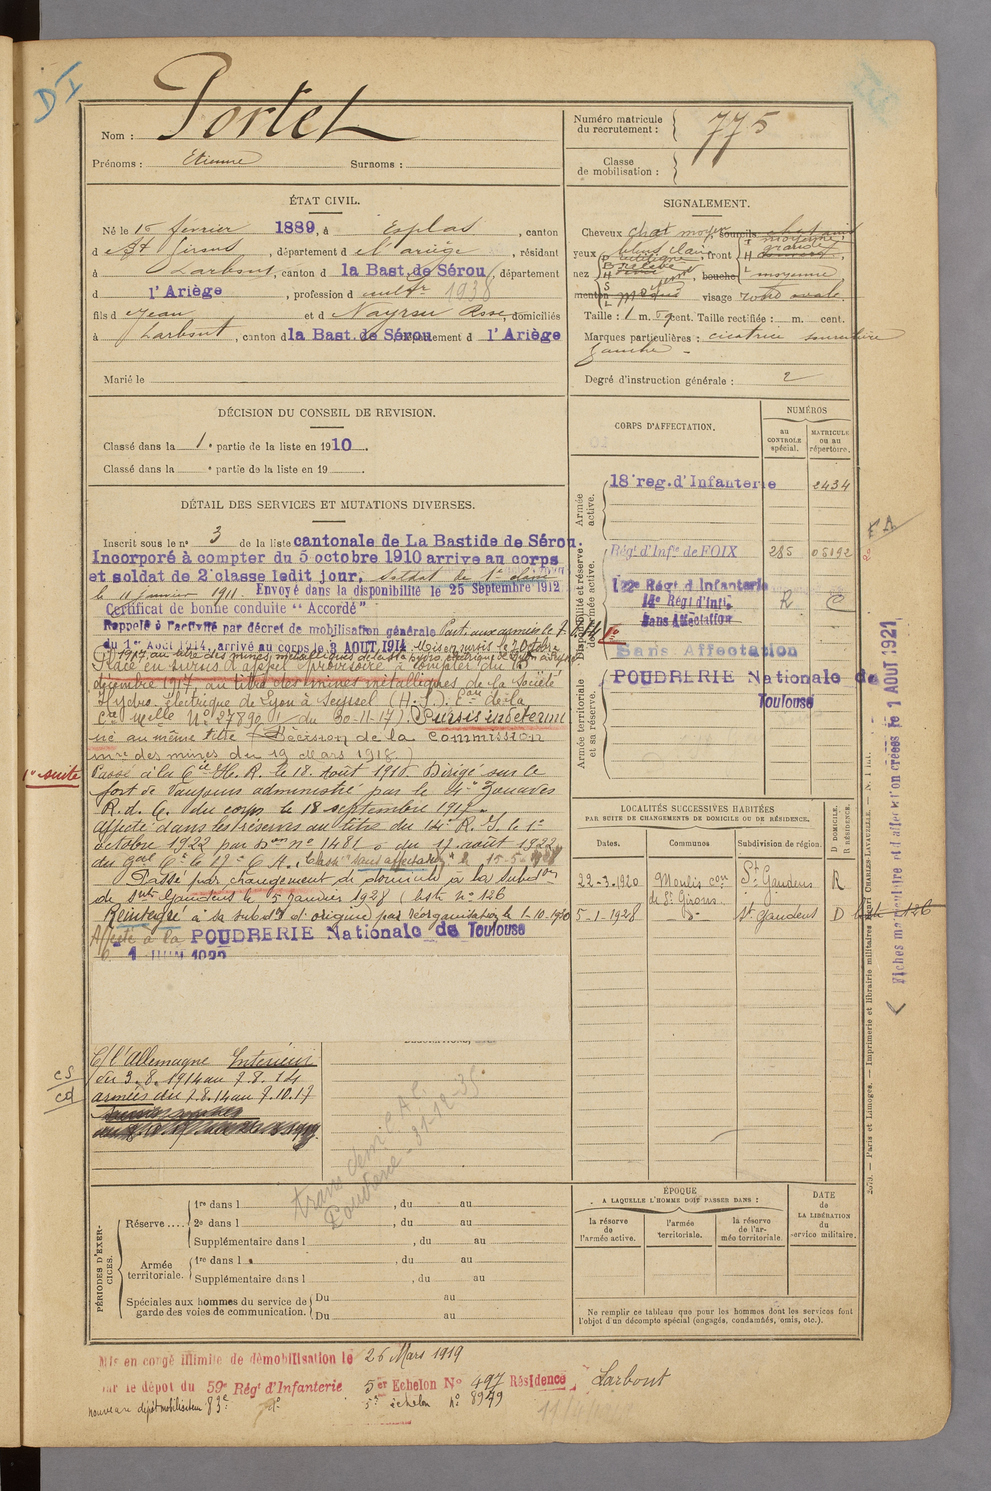 D I
Nom : Portet
Prénoms : Etienne Surnoms :
Numéro matricule du recrutement : 775
Classe de mobilisation :
ÉTAT CIVIL.
Né le 15 février 1889, à Esplas, canton
d e St Girons, département d e l'ariège, résidant
à Larbont, canton d la Bast. de Sérou, département
d l'Ariège, profession d cultr 1938
fils d e Jean et d Nayrou Rose, domiciliés
à Larbont, canton d la Bast. de Sérou département d l'Ariège
Marié le
SIGNALEMENT.
Cheveux chat moyen, sourcils chatains
yeux bleu clair, front
nez, bouche moyenne
menton visage rond ovale.
Taille : 1 m. 59 cent. Taille rectifiée : m. cent.
Marques particulières : cicatrice sourcilière
gauche -
Degré d'instruction générale : 2
DÉCISION DU CONSEIL DE REVISION.
Classé dans la 1e partie de la liste en 1910.
Classé dans la e partie de la liste en 19
DÉTAIL DES SERVICES ET MUTATIONS DIVERSES.
Inscrit sous le n° 3 de la liste cantonale de La Bastide de Sérou.
Incorporé à compter du 5 octobre 1910 arrive au corps
et soldat de 2e classe ledit jour, soldat de 1e classe
le 11 janvier 1911. Envoyé dans la disponibilité le 25 Septembre 1912
Certificat de bonne conduite "Accordé"
Rappelé à l'activité par décret de mobilisation générale Parti aux armées le 7.8.14
du 1er Août 1914, arrivé au corps le 3 AOUT 1914 Mis en sursis le 7 Octobre
1917, au titre des mines métalliques de la
Placé en sursis d'appel provisoire à compter du 13
décembre 1917, au titre des mines métalliques de la Société
Hydro-électrique de Lyon à Seyssel (H.S.). Con de la
Cie mlle N° 27890 (du 30-11-17) Sursis indétermi
né au même titre (Décision de la Commission
mre des mines du 19 Mars 1918)
1e suite
Passé à la 6e Cie H. R. le 18 Août 1918. Dirigé sur le
fort de Vaujours administré par le 4e Zouaves
R. d. C. du corps le 18 septembre 1918.
Affecté dans les réserves au titre du 14e R. I. le 1er
octobre 1922 par Don n° 1481 du 11 août 1922
du gal Ct le 17e C. A. Classé "sans affectation" le 15-5-
Passé par changement de domicile à la subdon
de Snt-Gaudens le 5 janvier 1928 (liste n° 126
Réintégré à la subdon d'origine par réorganisation le 1-10-1930
Affecté à la POUDRERIE Nationale de Toulouse
le 1 JUIN
CORPS D'AFFECTATION.
NUMÉROS
au CONTROLE spécial.
MATRICULE ou au répertoire.
Armée active.
18e reg. d'Infanterie 2434
Disponibilité et réserve de l'armée active.
Régt d'Infe de FOIX 285 05192
Régt d'Infanterie
14e Régt d'Infie R C
Sans Affectation
Sans Affectation
Armée territoriale et sa réserve.
POUDRERIE Nationale de
Toulouse
LOCALITÉS SUCCESSIVES HABITÉES
PAR SUITE DE CHANGEMENTS DE DOMICILE OU DE RÉSIDENCE.
Dates. Communes. Subdivision de région. D DOMICILE. R RÉSIDENCE.
22-3-1920 Moulis con de St Girons St Gaudens R
5-1-1928 - d° - St Gaudens D liste 126
F A
Fiches matriculaire et d'affectation créées le 1 AOUT 1921
C/ l'Allemagne Intérieur
du 3.8.1914 au 7.8.14
armées du 7.8.14 au 7.10.17
cs
cd
Poudrerie 31-12-35
PÉRIODES D'EXERCICES.
Réserve .... 1re dans l , du au
2e dans l , du au
Supplémentaire dans l , du au
Armée territoriale. 1re dans l , du au
Supplémentaire dans l , du au
Spéciales aux hommes du service de garde des voies de communication. Du au
Du au
ÉPOQUE
A LAQUELLE L'HOMME DOIT PASSER DANS :
la réserve de l'armée active.
l'armée territoriale.
la réserve de l'armée territoriale.
DATE de LA LIBÉRATION du service militaire.
Ne remplir ce tableau que pour les hommes dont les services font
l'objet d'un décompte spécial (engagés, condamnés, omis, etc.).
Paris et Limoges. — Imprimerie et librairie militaires Henri CHARLES-LAVAUZELLE.
Mis en congé illimité de démobilisation le 26 Mars 1919
par le dépôt du 59e Régt d'Infanterie 5er Echelon N° 497 Résidence Larbont
nouveau dépôt mobilisateur 83e 5e échelon n° 8949